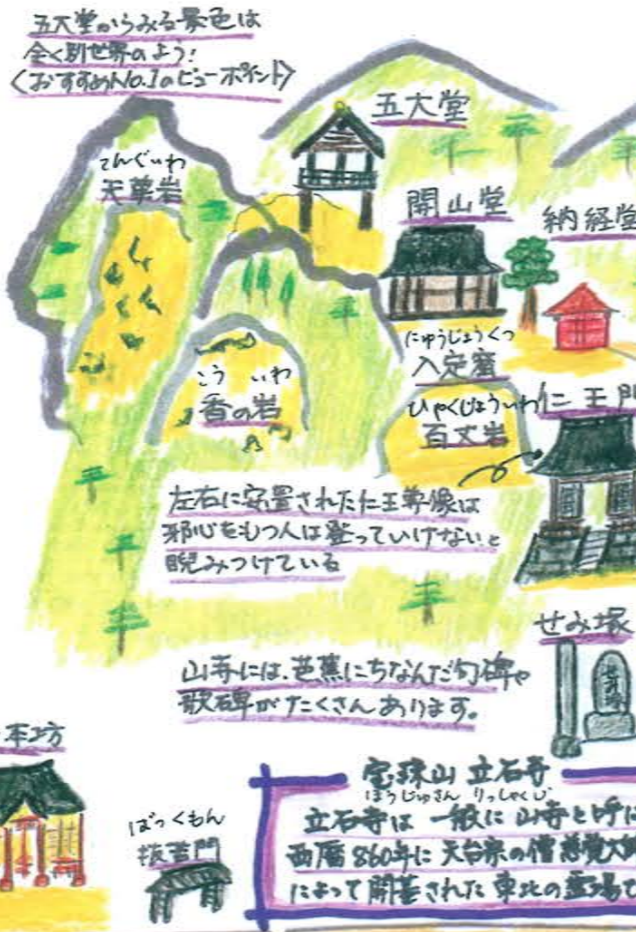 五大堂からみる景色は
全く別世界のよう!
〈おすすめNo.1のビューポイント〉
五大堂
てんぐいわ
天華岩
開山堂
納経堂
にゅうじょうくつ
入定窟
こう いわ
香の岩
ひゃくじょういわ
百丈岩
仁王門
左右に安置された仁王尊像は
邪心をもつ人は登っていけないと
睨みつけている
せみ塚
山寺には、芭蕉にちなんだ句碑や
歌碑がたくさんあります。
本坊
ばっくもん
抜苦門
宝珠山 立石寺
ほうじゅさん りっしゃくじ
立石寺は 一般に 山寺と呼ば
西暦860年に 天台宗の僧 慈覚大師
によって開基された 東北の霊場で